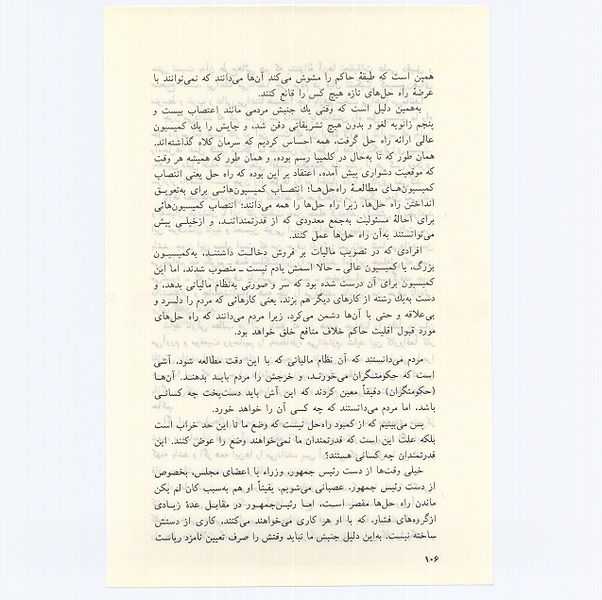 همین است که طبقهٔ حاکم را مشوش می‌کند آن‌ها می‌دانند که نمی‌توانند با
عرضهٔ راه حل‌های تازه هیچ کس را قانع کنند.
به‌همین دلیل است که وقتی یك جنبش مردمی مانند اعتصاب بیست و
پنجم ژانویه لغو و بدون هیچ تشریفاتی دفن شد، و جایش را یك کمیسیون
عالی ارائه راه حل گرفت، همه احساس کردیم که سرمان کلاه گذاشته‌اند.
همان طور که تا به‌حال در کلمبیا رسم بوده، و همان طور که همیشه هر وقت
که موقعیت دشواری پیش آمده، اعتقاد بر این بوده که راه حل یعنی انتصاب
کمیسیون‌های مطالعهٔ راه‌حل‌ها؛ انتصاب کمیسیون‌هائی برای به‌تعویق
انداختن راه حل‌ها، زیرا راه حل‌ها را همه می‌دانند؛ انتصاب کمیسیون‌هائی
برای احالهٔ مسئولیت به‌جمع معدودی که از قدرتمداننـد، و ازخیلـی پیش
می‌توانستند به‌آن راه حل‌ها عمل کنند.
افرادی که در تصویب مالیات بر فروش دخالت داشتند، به‌کمیسیون
بزرگ، یا کمیسیون عالی ـ حالا اسمش یادم نیست ـ منصوب شدند، اما این
کمیسیون برای آن درست شده بود که سر و صورتی به‌نظام مالیاتی بدهد، و
دست به‌یك رشته از کارهای دیگر هم بزند، یعنی کارهائی که مردم را دلسرد و
بی‌علاقه و حتی با آن‌ها دشمن می‌کرد، زیرا مردم می‌دانند که راه حل‌های
مورد قبول اقلیت حاکم خلاف منافع خلق خواهد بود.
مردم می‌دانستند که آن نظام مالیاتی که با این دقت مطالعه شود، آشی
است که حکومتگران می‌خورنـد، و خرجش را مردم بایـد بدهنـد. آن‌هـا
(حکومتگران) دقیقاً معین کردند که این آش باید دست‌پخت چه کسانـی
باشد، اما مردم می‌دانستند که چه کسی آن را خواهد خورد.
پس می‌بینیم که از کمبود راه‌حل نیست که وضع ما تا این حد خراب است
بلکه علت این است که قدرتمندان ما نمی‌خواهند وضع را عوض کنند. این
قدرتمندان چه کسانی هستند؟
خیلی وقت‌ها از دست رئیس جمهور، وزراء یا اعضای مجلس، بخصوص
از دست رئیس جمهور، عصبانی می‌شویم، یقیناً او هم به‌سبب کان لم یکن
ماندن راه حل‌ها مقصر است، امـا رئیس‌جمهور در مقابـل عدهٔ زیـادی
ازگروه‌های فشار، که با او هر کاری می‌خواهند می‌کنند، کاری از دستش
ساخته نیست. به‌این دلیل جنبش ما نباید وقتش را صرف تعیین نامزد ریاست
۱۰۶